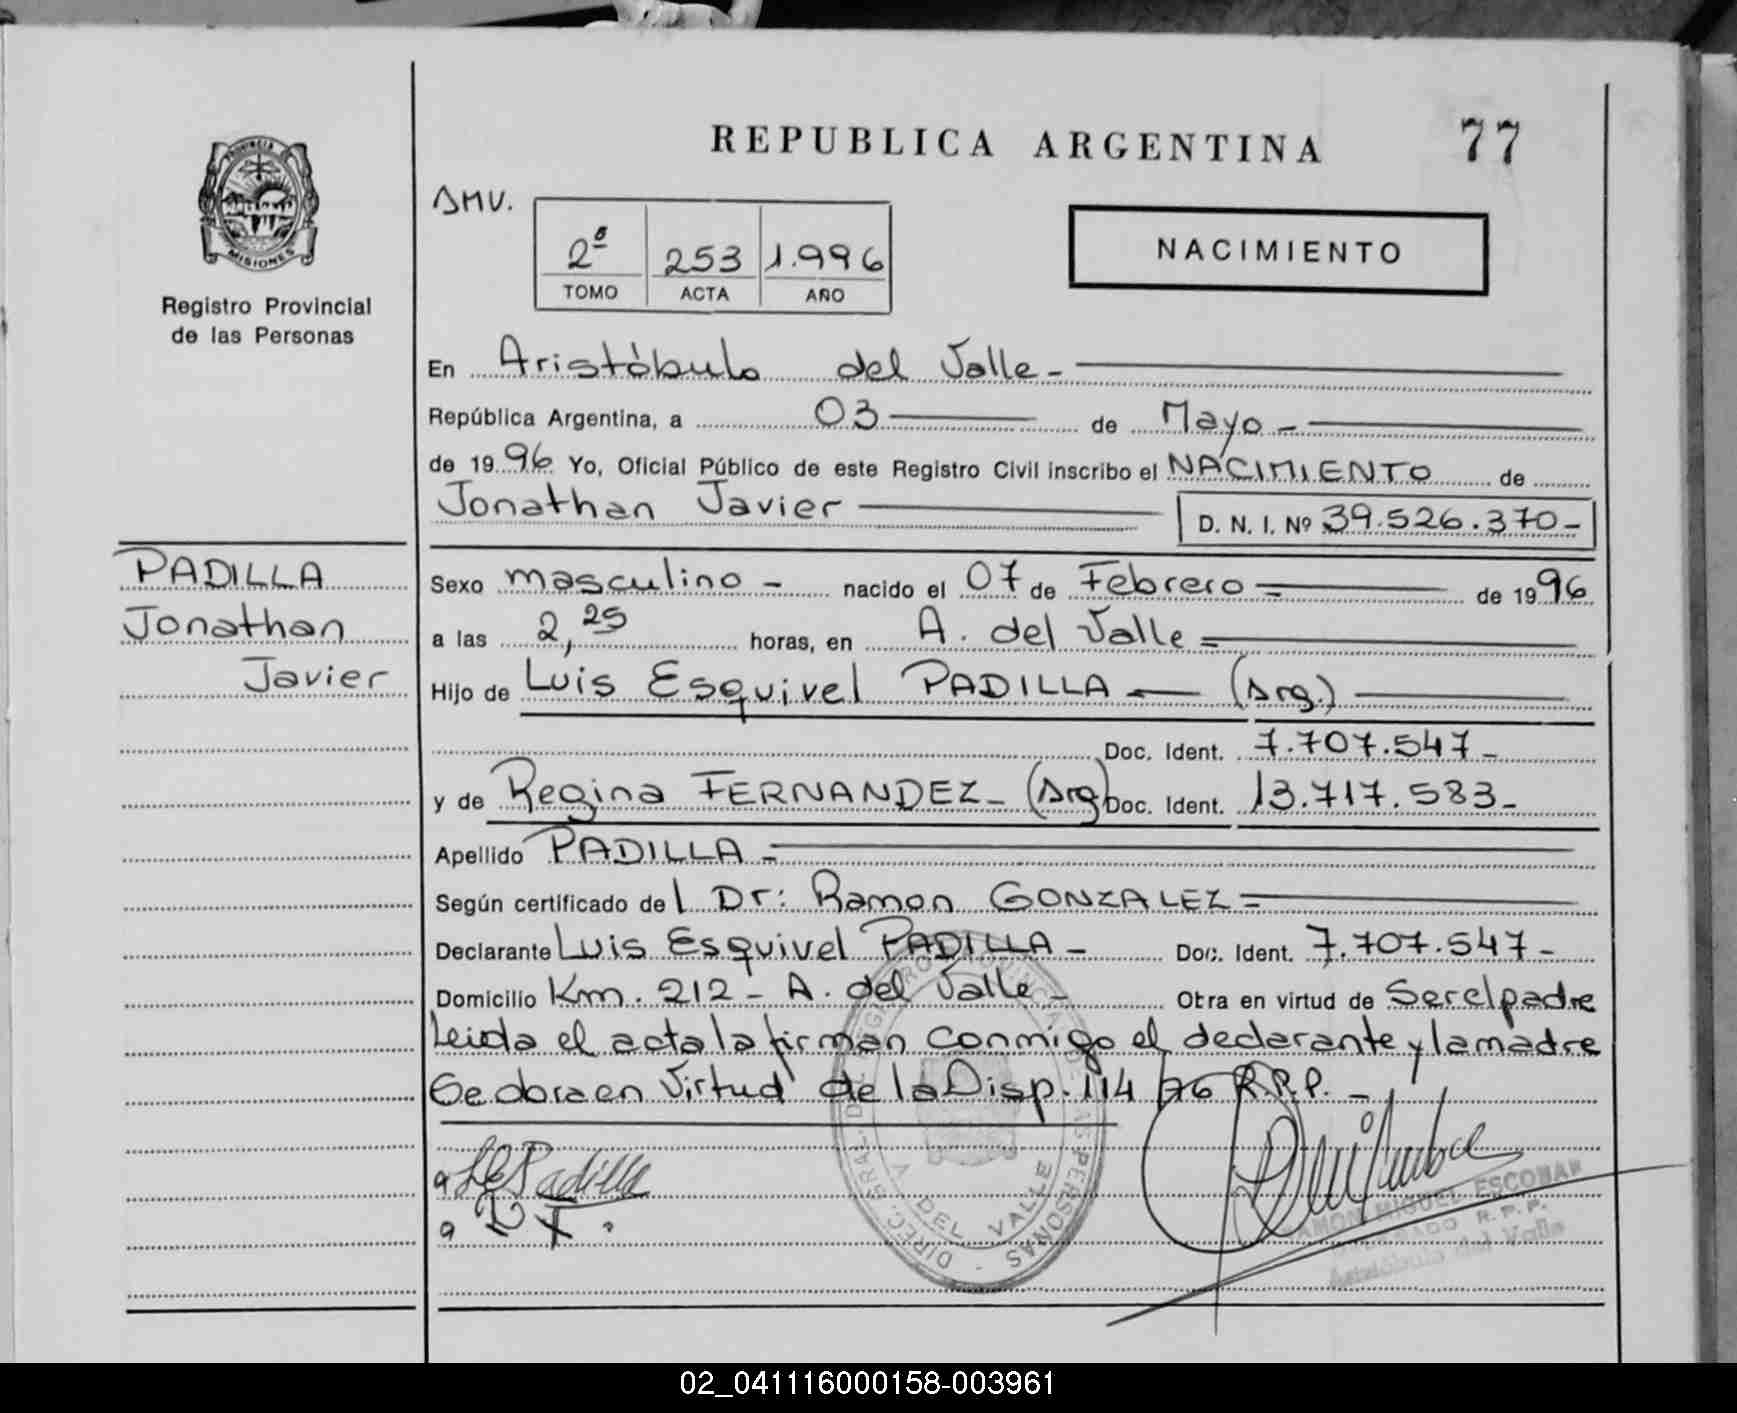 REPUBLICA ARGENTINA 77
PROVINCIA DE
MISIONES
Registro Provincial
de las Personas
2ª 253 1.996
TOMO ACTA AÑO
NACIMIENTO
En Aristóbulo del Valle -
República Argentina, a 03 de Mayo -
de 1996 Yo, Oficial Público de este Registro Civil inscribo el NACIMIENTO de
Jonathan Javier D. N. I. Nº 39.526.370-
PADILLA
Jonathan
Javier
Sexo masculino - nacido el 07 de Febrero = de 1996
a las 2,25 horas, en A. del Valle =
Hijo de Luis Esquivel PADILLA - (Arg.)
Doc. Ident. 7.707.547-
y de Regina FERNANDEZ - (Arg) Doc. Ident. 13.717.583-
Apellido PADILLA =
Según certificado del Dr: Ramon GONZALEZ =
Declarante Luis Esquivel PADILLA - Doc. Ident. 7.707.547-
Domicilio Km. 212 - A. del Valle - Otra en virtud de Ser el padre
Leida el acta la firman conmigo el declarante y la madre
Se obra en Virtud de la Disp. 114/76 R.P.P. -
a L E Padilla
a
DIREC. GRAL. DEL REGISTRO PROVINCIAL DE LAS PERSONAS
A. DEL VALLE
RAMON MIGUEL ESCOBAR
R.P.P.
Aristóbulo del Valle
02_041116000158-003961